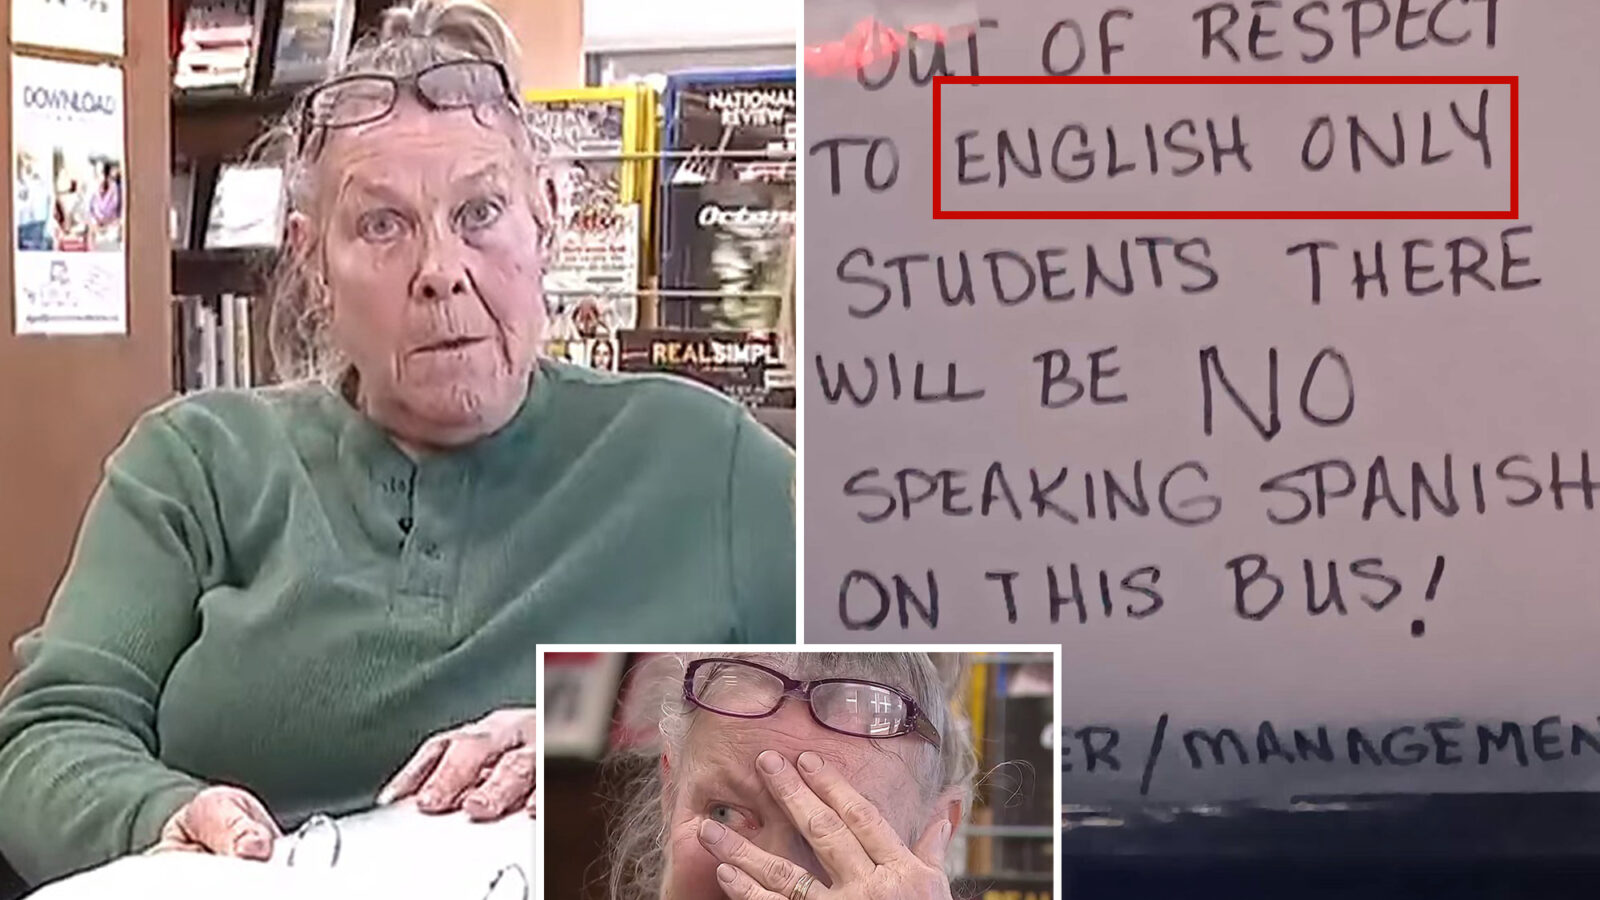 DOWNLOAD
NATIONAL
REVIEW
REAL SIMPL
OUT OF RESPECT
TO ENGLISH ONLY
STUDENTS THERE
WILL BE NO
SPEAKING SPANISH
ON THIS BUS!
ER/MANAGEMEN